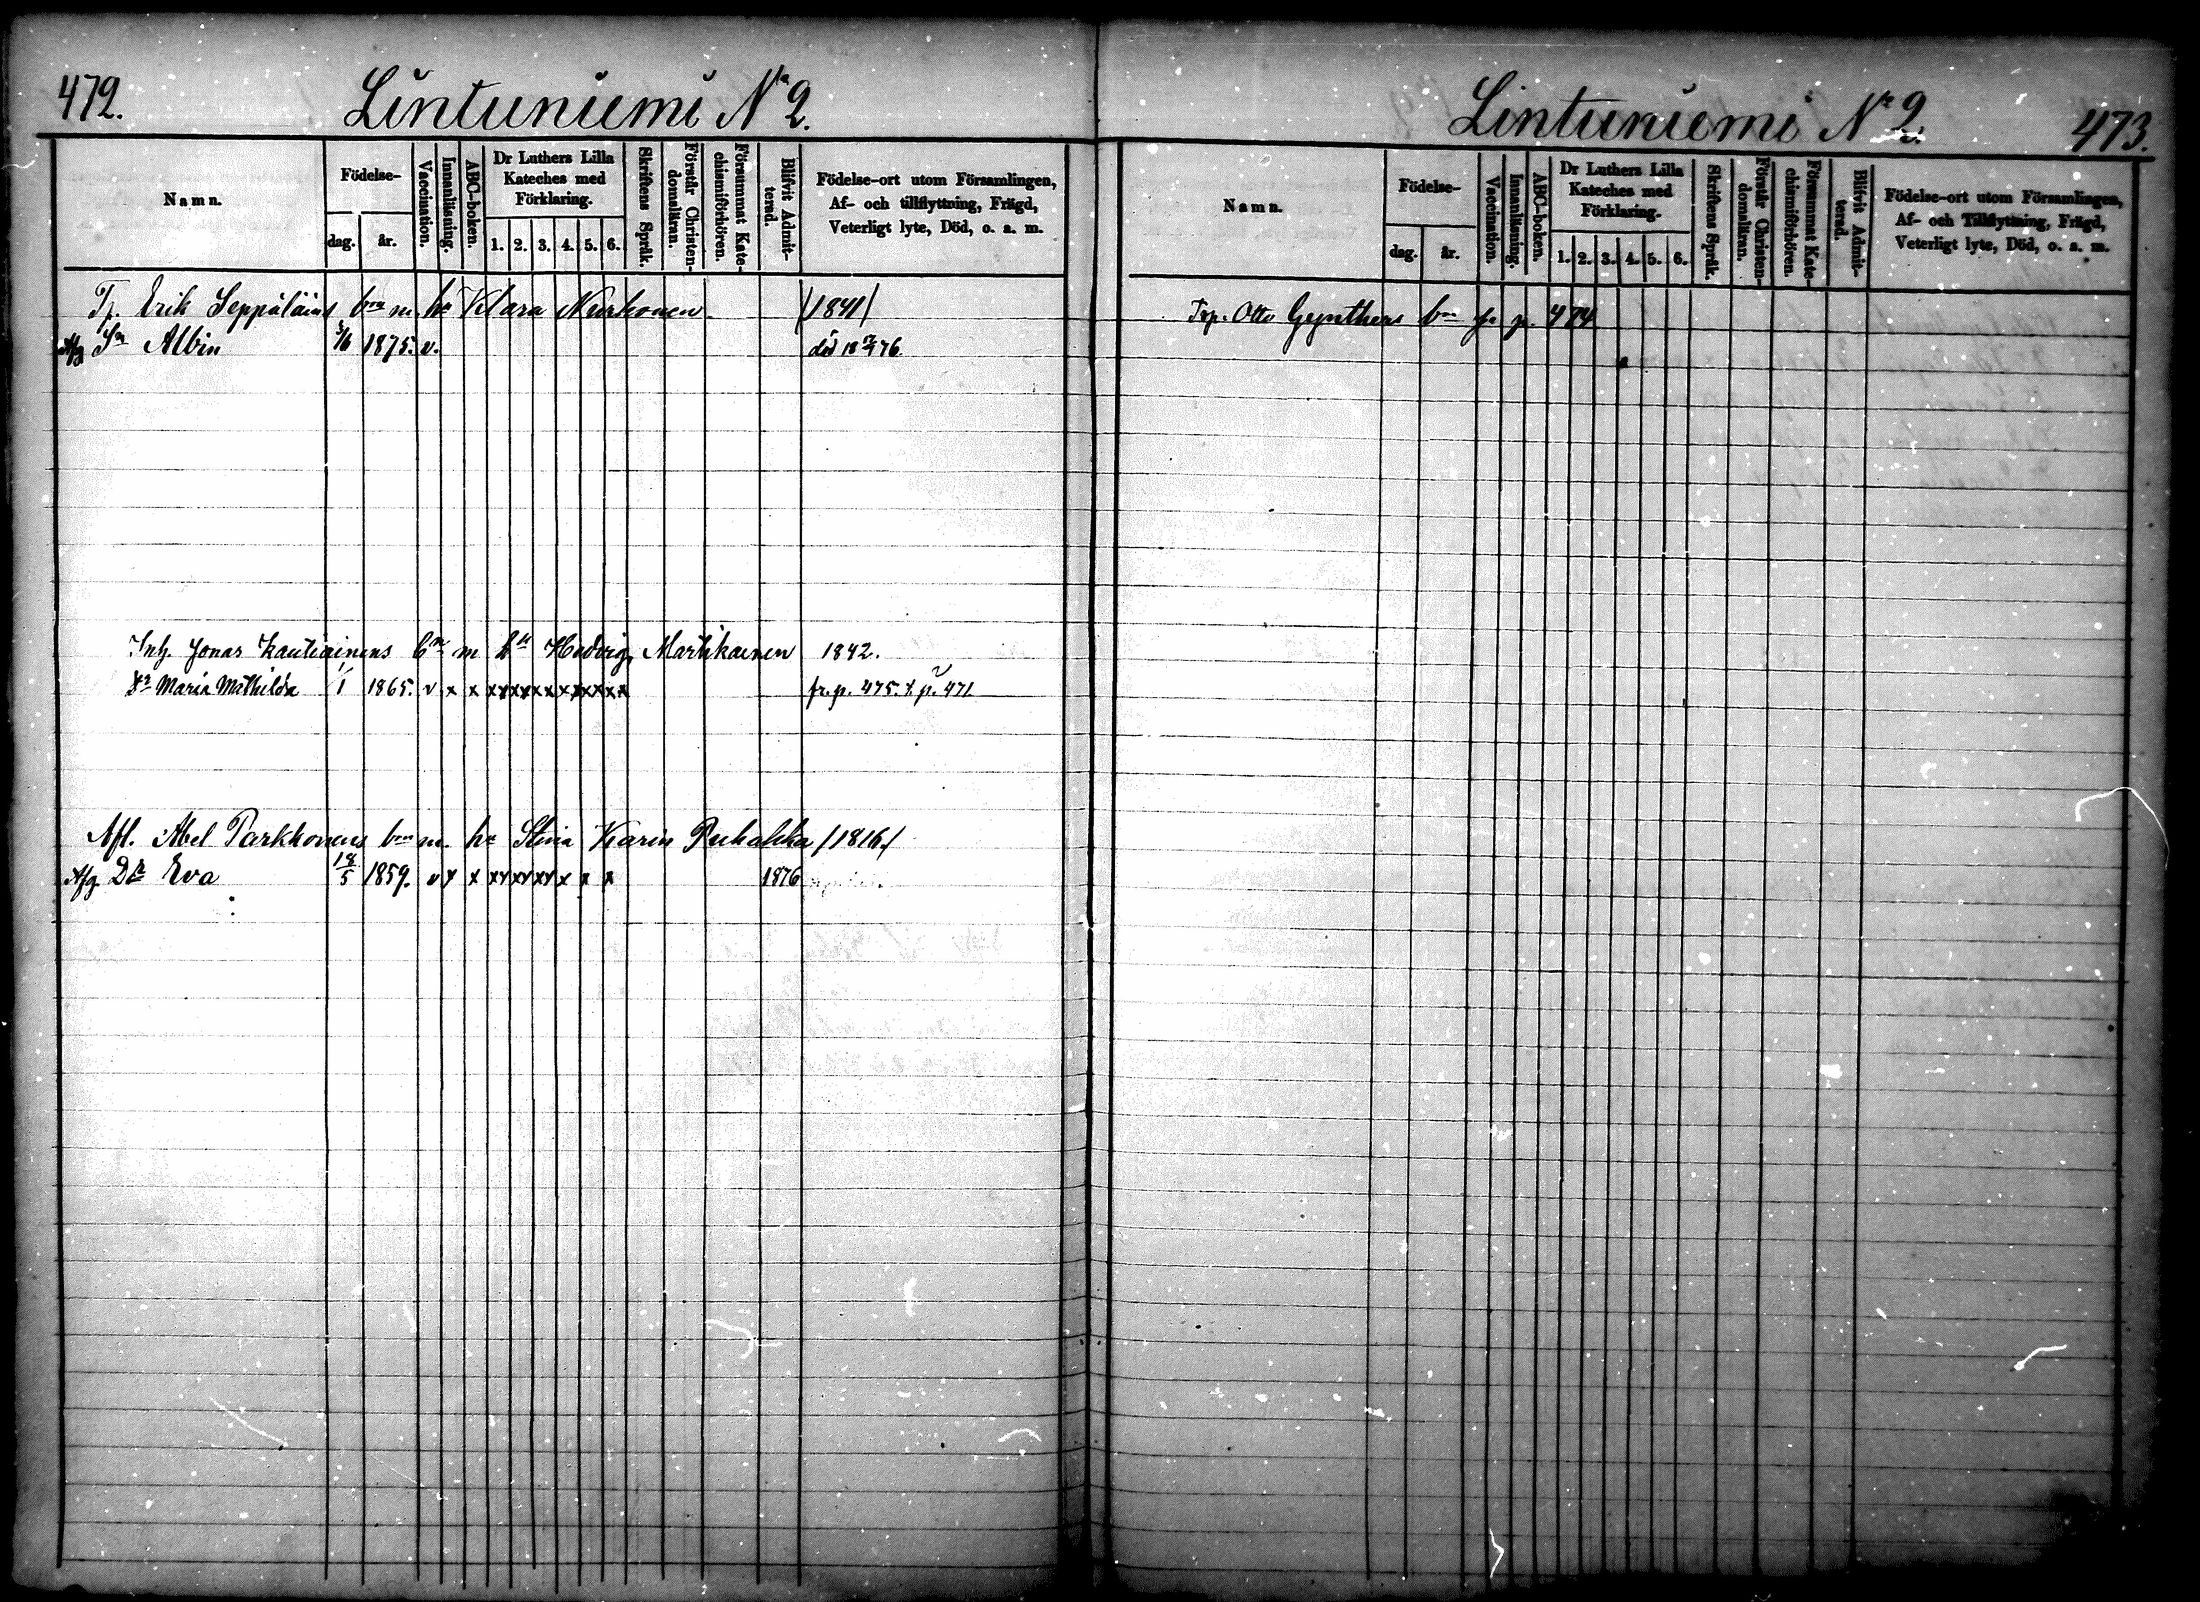 472.
Lintuniemi No 2.
Namn.
Födelse-
dag. år.
Vaccination.
Innanläsning.
ABC-boken.
Dr Luthers Lilla Kateches med Förklaring.
1. 2. 3. 4. 5. 6.
Skriftens Språk.
Förstår Christen-domsläran.
Försummat Kate-chismiförhören.
Blifvit Admit-terad.
Födelse-ort utom Församlingen,
Af- och tillflyttning, Frägd,
Veterligt lyte, Död, o. a. m.
Erik Seppäläins bn m. hu Klara Nurhonen. /1841/
Afg Sn Albin 1875. v. död 76.
Inh. Jonas Kautiainens bn m hu Hedvig Martikainen 1842.
Dr Maria Mathilda 1/1 1865. v x x xx xx xx xx xx xx fr. p. 475. t. p. 471
Afl. Abel Parkkonens bn m. hu Stina Karin Puhakka /1816/
Afg. Dr Eva 18/5 1859. v x x xx xx xx x x x 1876
Lintuniemi No 2.
473.
Namn.
Födelse-
dag. år.
Vaccination.
Innanläsning.
ABC-boken.
Dr Luthers Lilla Kateches med Förklaring.
1. 2. 3. 4. 5. 6.
Skriftens Språk.
Förstår Christen-domsläran.
Försummat Kate-chismiförhören.
Blifvit Admit-terad.
Födelse-ort utom Församlingen,
Af- och Tillflyttning, Frägd,
Veterligt lyte, Död, o. a. m.
Otto Gynthers bn p. 474